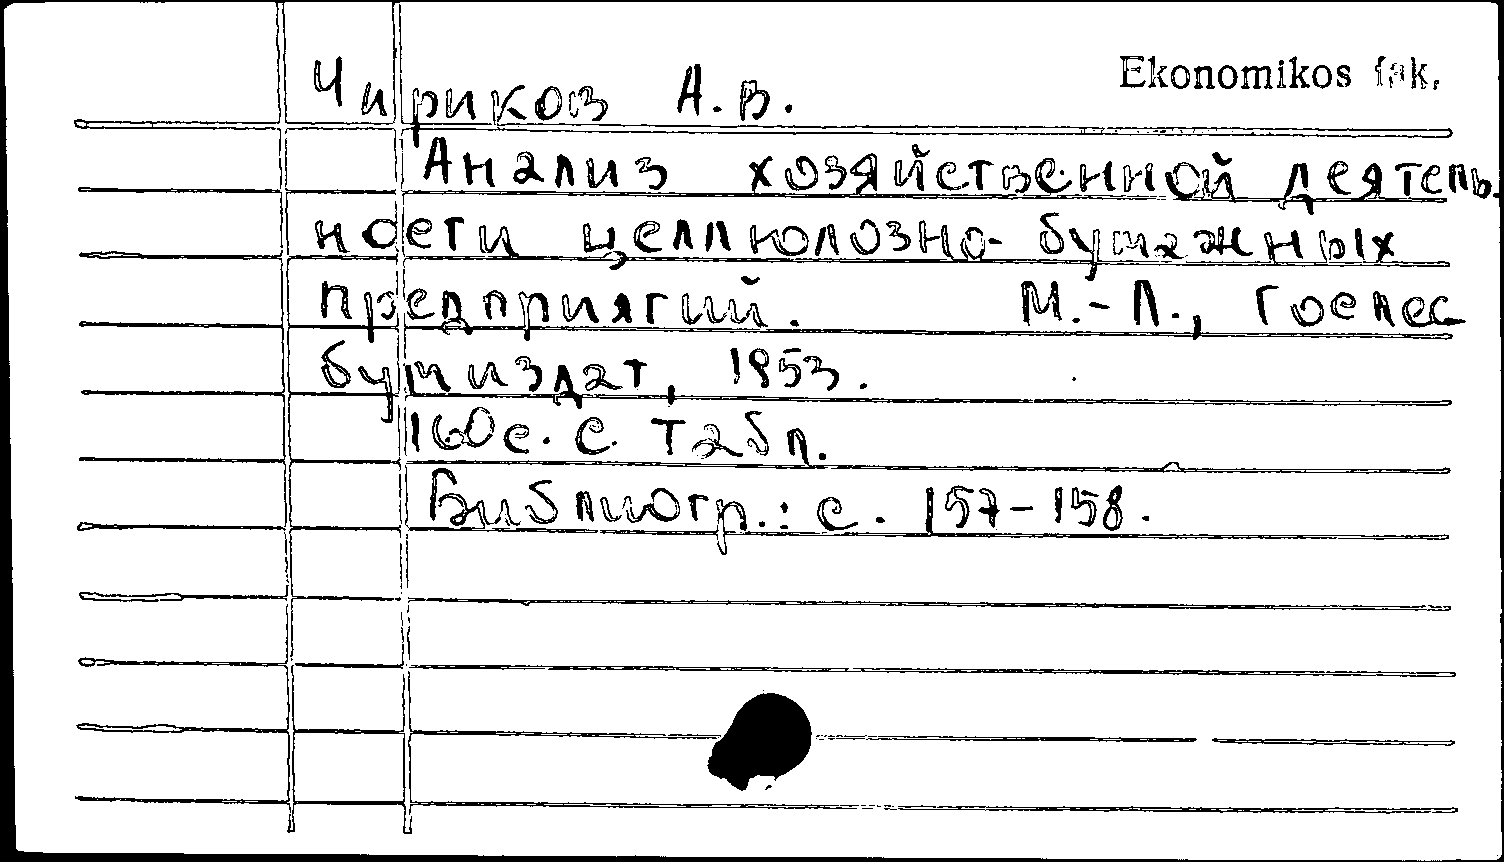 Ekonomikos fak.
Чириков А.В.
Анализ хозяйственной деятель-
ности целлюлозно-бумажных
предприятий. М.-Л., Гослес
бумиздат, 1953.
160с. с табл.
Библиогр.: с. 157-158.